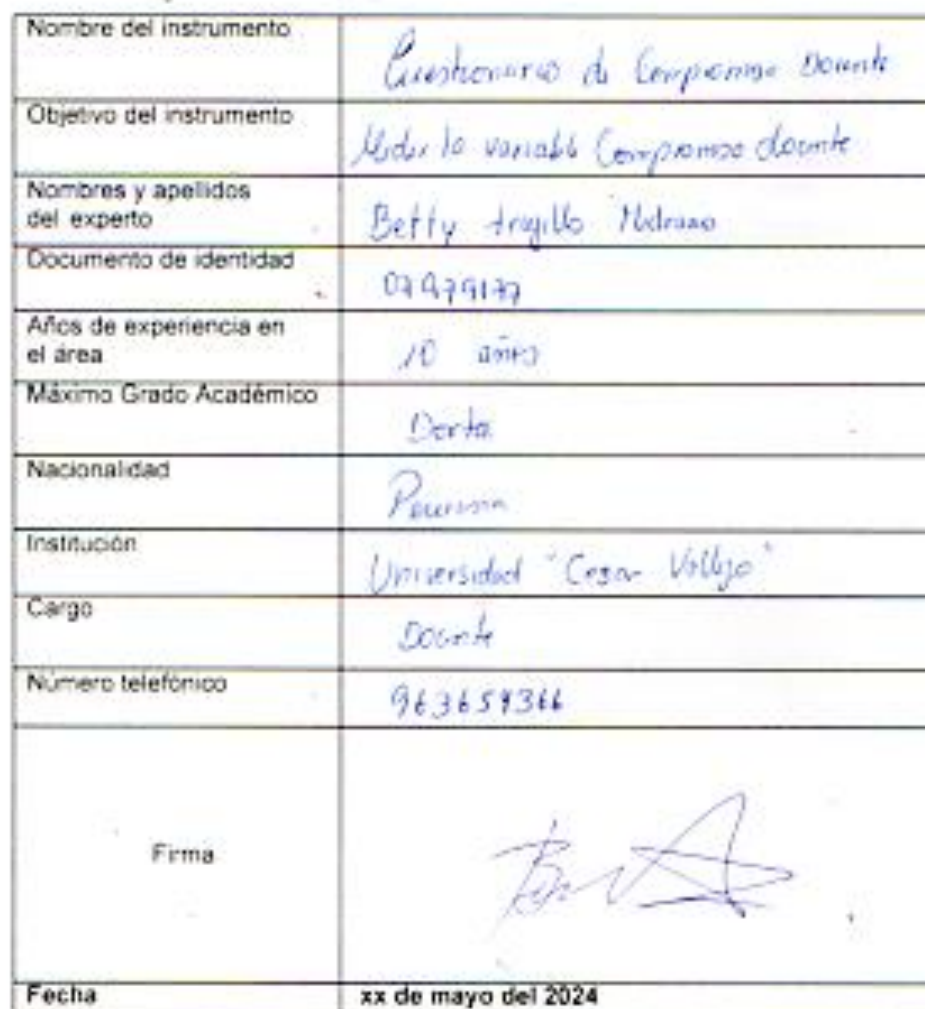 Nombre del instrumento
Cuestionario de Compromiso Docente
Objetivo del instrumento
Medir la variable Compromiso docente
Nombres y apellidos
del experto
Betty trujillo
Documento de identidad
Años de experiencia en
el área
10 años
Máximo Grado Académico
Nacionalidad
Peruana
Institución
Universidad "Cesar Vallejo"
Cargo
Docente
Número telefónico
Firma
Fecha
xx de mayo del 2024